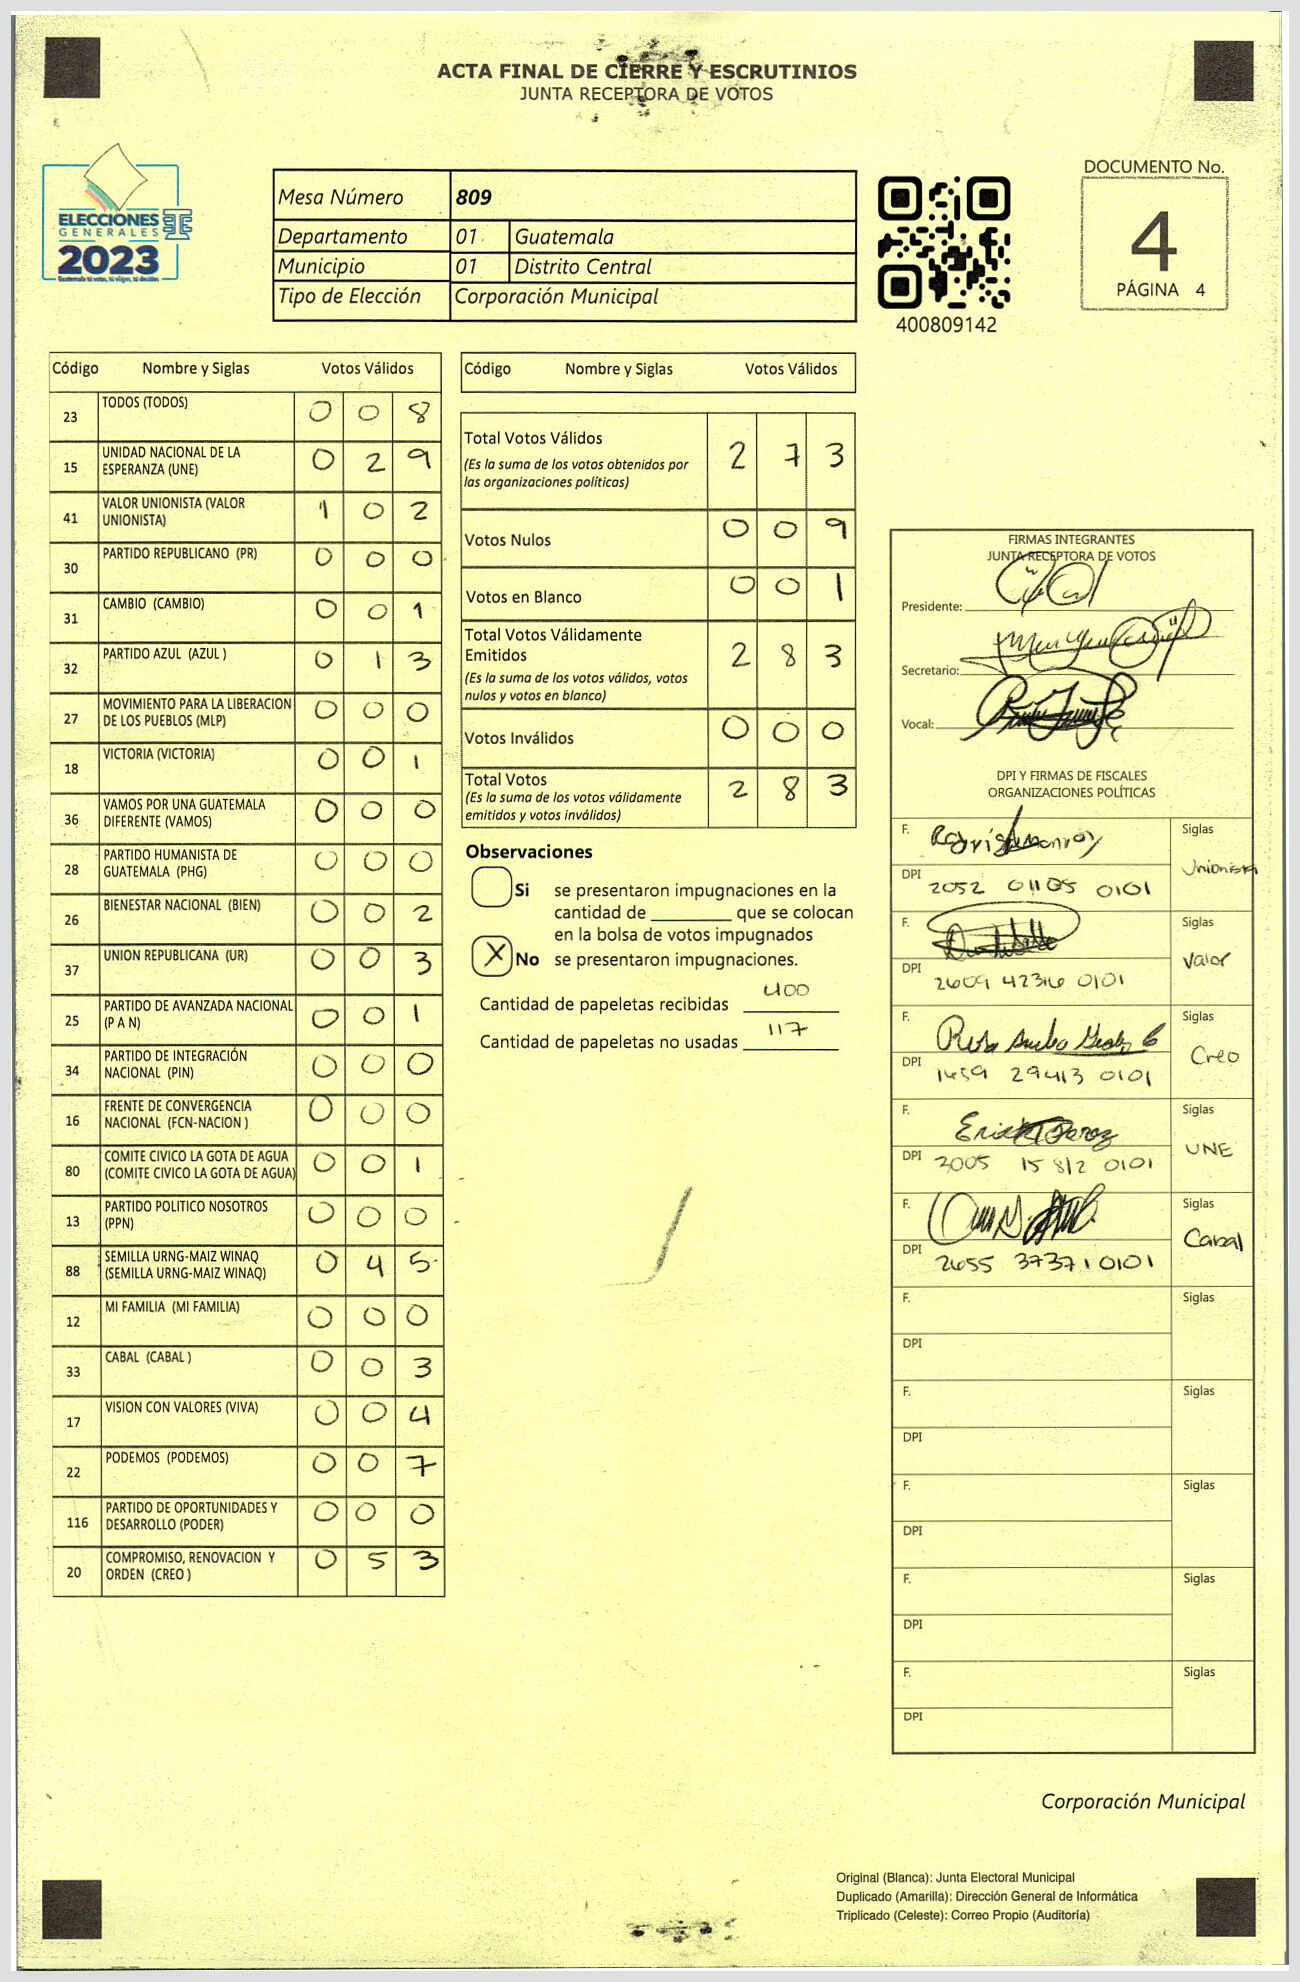 ACTA FINAL DE CIERRE Y ESCRUTINIOS
JUNTA RECEPTORA DE VOTOS
ELECCIONES
GENERALES
2023
Mesa Número 809
Departamento 01 Guatemala
Municipio 01 Distrito Central
Tipo de Elección Corporación Municipal
400809142
DOCUMENTO No.
4
PÁGINA 4
Código Nombre y Siglas Votos Válidos
23 TODOS (TODOS) 0 0 8
15 UNIDAD NACIONAL DE LA
ESPERANZA (UNE) 0 2 9
41 VALOR UNIONISTA (VALOR
UNIONISTA) 1 0 2
30 PARTIDO REPUBLICANO (PR) 0 0 0
31 CAMBIO (CAMBIO) 0 0 1
32 PARTIDO AZUL (AZUL ) 0 1 3
27 MOVIMIENTO PARA LA LIBERACION
DE LOS PUEBLOS (MLP) 0 0 0
18 VICTORIA (VICTORIA) 0 0 1
36 VAMOS POR UNA GUATEMALA
DIFERENTE (VAMOS) 0 0 0
28 PARTIDO HUMANISTA DE
GUATEMALA (PHG) 0 0 0
26 BIENESTAR NACIONAL (BIEN) 0 0 2
37 UNION REPUBLICANA (UR) 0 0 3
25 PARTIDO DE AVANZADA NACIONAL
(P A N) 0 0 1
34 PARTIDO DE INTEGRACIÓN
NACIONAL (PIN) 0 0 0
16 FRENTE DE CONVERGENCIA
NACIONAL (FCN-NACION ) 0 0 0
80 COMITE CIVICO LA GOTA DE AGUA
(COMITE CIVICO LA GOTA DE AGUA) 0 0 1
13 PARTIDO POLITICO NOSOTROS
(PPN) 0 0 0
88 SEMILLA URNG-MAIZ WINAQ
(SEMILLA URNG-MAIZ WINAQ) 0 4 5
12 MI FAMILIA (MI FAMILIA) 0 0 0
33 CABAL (CABAL ) 0 0 3
17 VISION CON VALORES (VIVA) 0 0 4
22 PODEMOS (PODEMOS) 0 0 7
116 PARTIDO DE OPORTUNIDADES Y
DESARROLLO (PODER) 0 0 0
20 COMPROMISO, RENOVACION Y
ORDEN (CREO ) 0 5 3
Código Nombre y Siglas Votos Válidos
Total Votos Válidos 2 7 3
(Es la suma de los votos obtenidos por
las organizaciones políticas)
Votos Nulos 0 0 9
Votos en Blanco 0 0 1
Total Votos Válidamente
Emitidos 2 8 3
(Es la suma de los votos válidos, votos
nulos y votos en blanco)
Votos Inválidos 0 0 0
Total Votos 2 8 3
(Es la suma de los votos válidamente
emitidos y votos inválidos)
Observaciones
Si se presentaron impugnaciones en la
cantidad de ________ que se colocan
en la bolsa de votos impugnados
X No se presentaron impugnaciones.
Cantidad de papeletas recibidas 400
Cantidad de papeletas no usadas 117
FIRMAS INTEGRANTES
JUNTA RECEPTORA DE VOTOS
Presidente:
Secretario:
Vocal:
DPI Y FIRMAS DE FISCALES
ORGANIZACIONES POLÍTICAS
F. Siglas
Unionista
DPI 2052 01105 0101
F. Siglas
Valor
DPI 2609 42316 0101
F. Siglas
Creo
DPI 1659 29413 0101
F. Erick Perez Siglas
UNE
DPI 3005 15812 0101
F. Siglas
Cabal
DPI 2655 37371 0101
F. Siglas
DPI
F. Siglas
DPI
F. Siglas
DPI
F. Siglas
DPI
F. Siglas
DPI
Corporación Municipal
Original (Blanca): Junta Electoral Municipal
Duplicado (Amarilla): Dirección General de Informática
Triplicado (Celeste): Correo Propio (Auditoría)